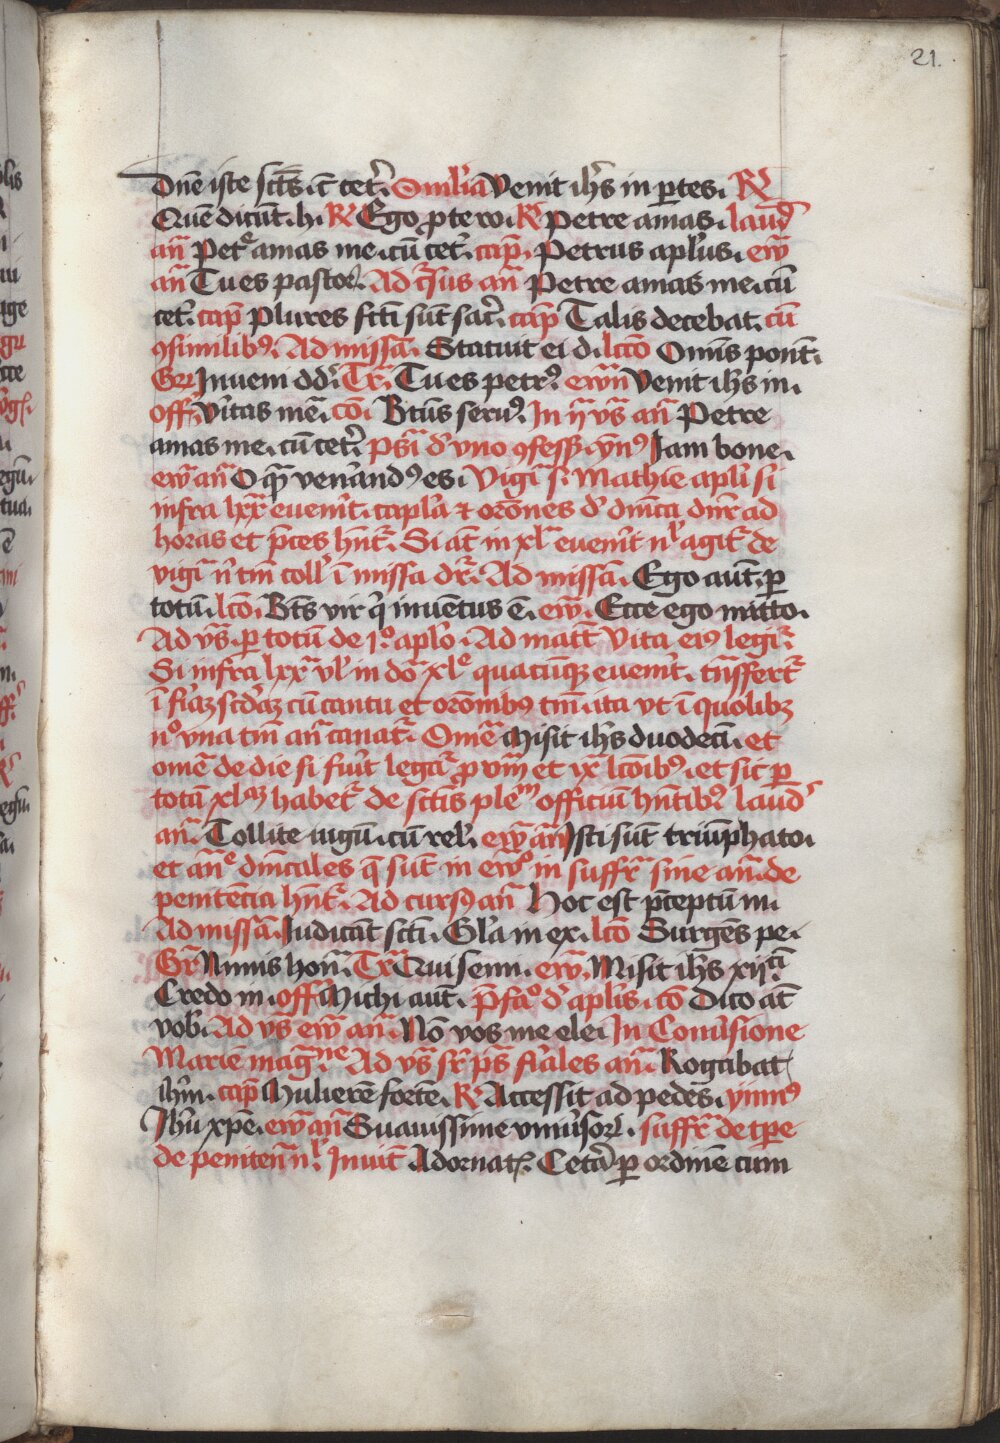 21.
Dn̄e iste sct̄s ⁊ cet̄. Omīlia Venit ih̄s in ꝑtes. R̄
Quē dicūt. h. R̄ Ego ꝓ te ro. R̄ Petre amas. laud̄
an̄ Petꝰ amas me. cū cet̄. cap̄. Petrus apl̄us. ew̄
an̄ Tu es pastor. Ad c̄sus an̄ Petre amas me. cū
cet̄. cap̄ Plures fc̄ti sūt sac̄. cap̄ Talis decebat. cū
ꝯsimilibꝰ. Ad missā. Statuit ei d. lcō Omīs pont̄.
Gr̄ Inveni dd̄. Tr̄. Tu es petrꝰ. ew̄n Venit ih̄s in.
off̄. v̄itas mē. cō. Bt̄us seruꝰ. In ij vs̄ an̄ Petre
amas me. cū cet̄. ps̄i d̄ vno ꝯfess̄. ȳnꝰ Iam bone.
ew̄ an̄ O qm̄ ven̄andꝰ es. Vigi̅a s. Mathie apl̄i si
infra lxx̄ evenīt. capl̄a ⁊ or̄ones d̄ dn̄ica dn̄r ad
horas et p̄ces hn̄t̄. Si at̄ in xl̄ evenīt nl̄ agit̄ de
vigi̅a n̄ tm̄ coll̄ ī missa dr̄. Ad missā. Ego aut̄. ꝑ
totū. lcō. Bt̄s vir q̇ inuētus ē. ew̄. Ecce ego mitto.
Ad vs̄. ꝑ totū de 1º. apl̄o. Ad matt̄ Vita eiꝰ legit̄.
Si infra lxx̄ vl̄ in do̅ xl̄e quacūqꝫ evenīt. tn̄sfert̄
ī fi̅aꝫ scd̄aꝫ cū cantu et or̄onibꝰ tm̄. ita vt ī quolibꝫ
nº vna tm̄ an̄ canat̄. Omē Misit ih̄s duodecī. et
omē de die si fuīt legit̄ ꝓ vīīī et ix lcōibꝰ. et sic ꝑ
totā xl̄aꝫ habet̄ de sct̄is plem̄ officiū hn̄tibꝰ. laud̄
an̄. Tollite iugū. cū rel̄. ew̄ an̄ Isti sūt triūphato.
et an̄e dn̄icales q̄ sūt in ew̄º in suffr̄ sine an̄. de
penitēcia hn̄t̄. Ad cursꝰ an̄ Hoc est p̄ceptū m.
Ad missā. Iudicāt sct̄i. Gl̄a in ex. lcō Surgēs pe.
Gr̄ Nimis hon̄. Tr̄ Qui semi. ew̄. Misit ih̄s xijcī
Credo in. off̄ Michi aut̄. p̄fcº d̄ apl̄is. cō Dico at̄
vob̄. Ad vs̄ ew̄ an̄. Nō vos me elei In Con̄ūsione
Mariē mag̅ne Ad vs̄ sr̄ ps̄ fi̅ales an̄. Rogabat
ih̄m. cap̄ Mulierē fortē. R̄ Accessit ad pedes. ymnꝰ
Ih̄u xp̄e. ew̄ an̄ Suauissime vniūsor̄. suffr̄ de tp̄e
de peniten̄ nl̄. Inuit̄ Adornat̄. Cet̄a ꝑ ordinē cum